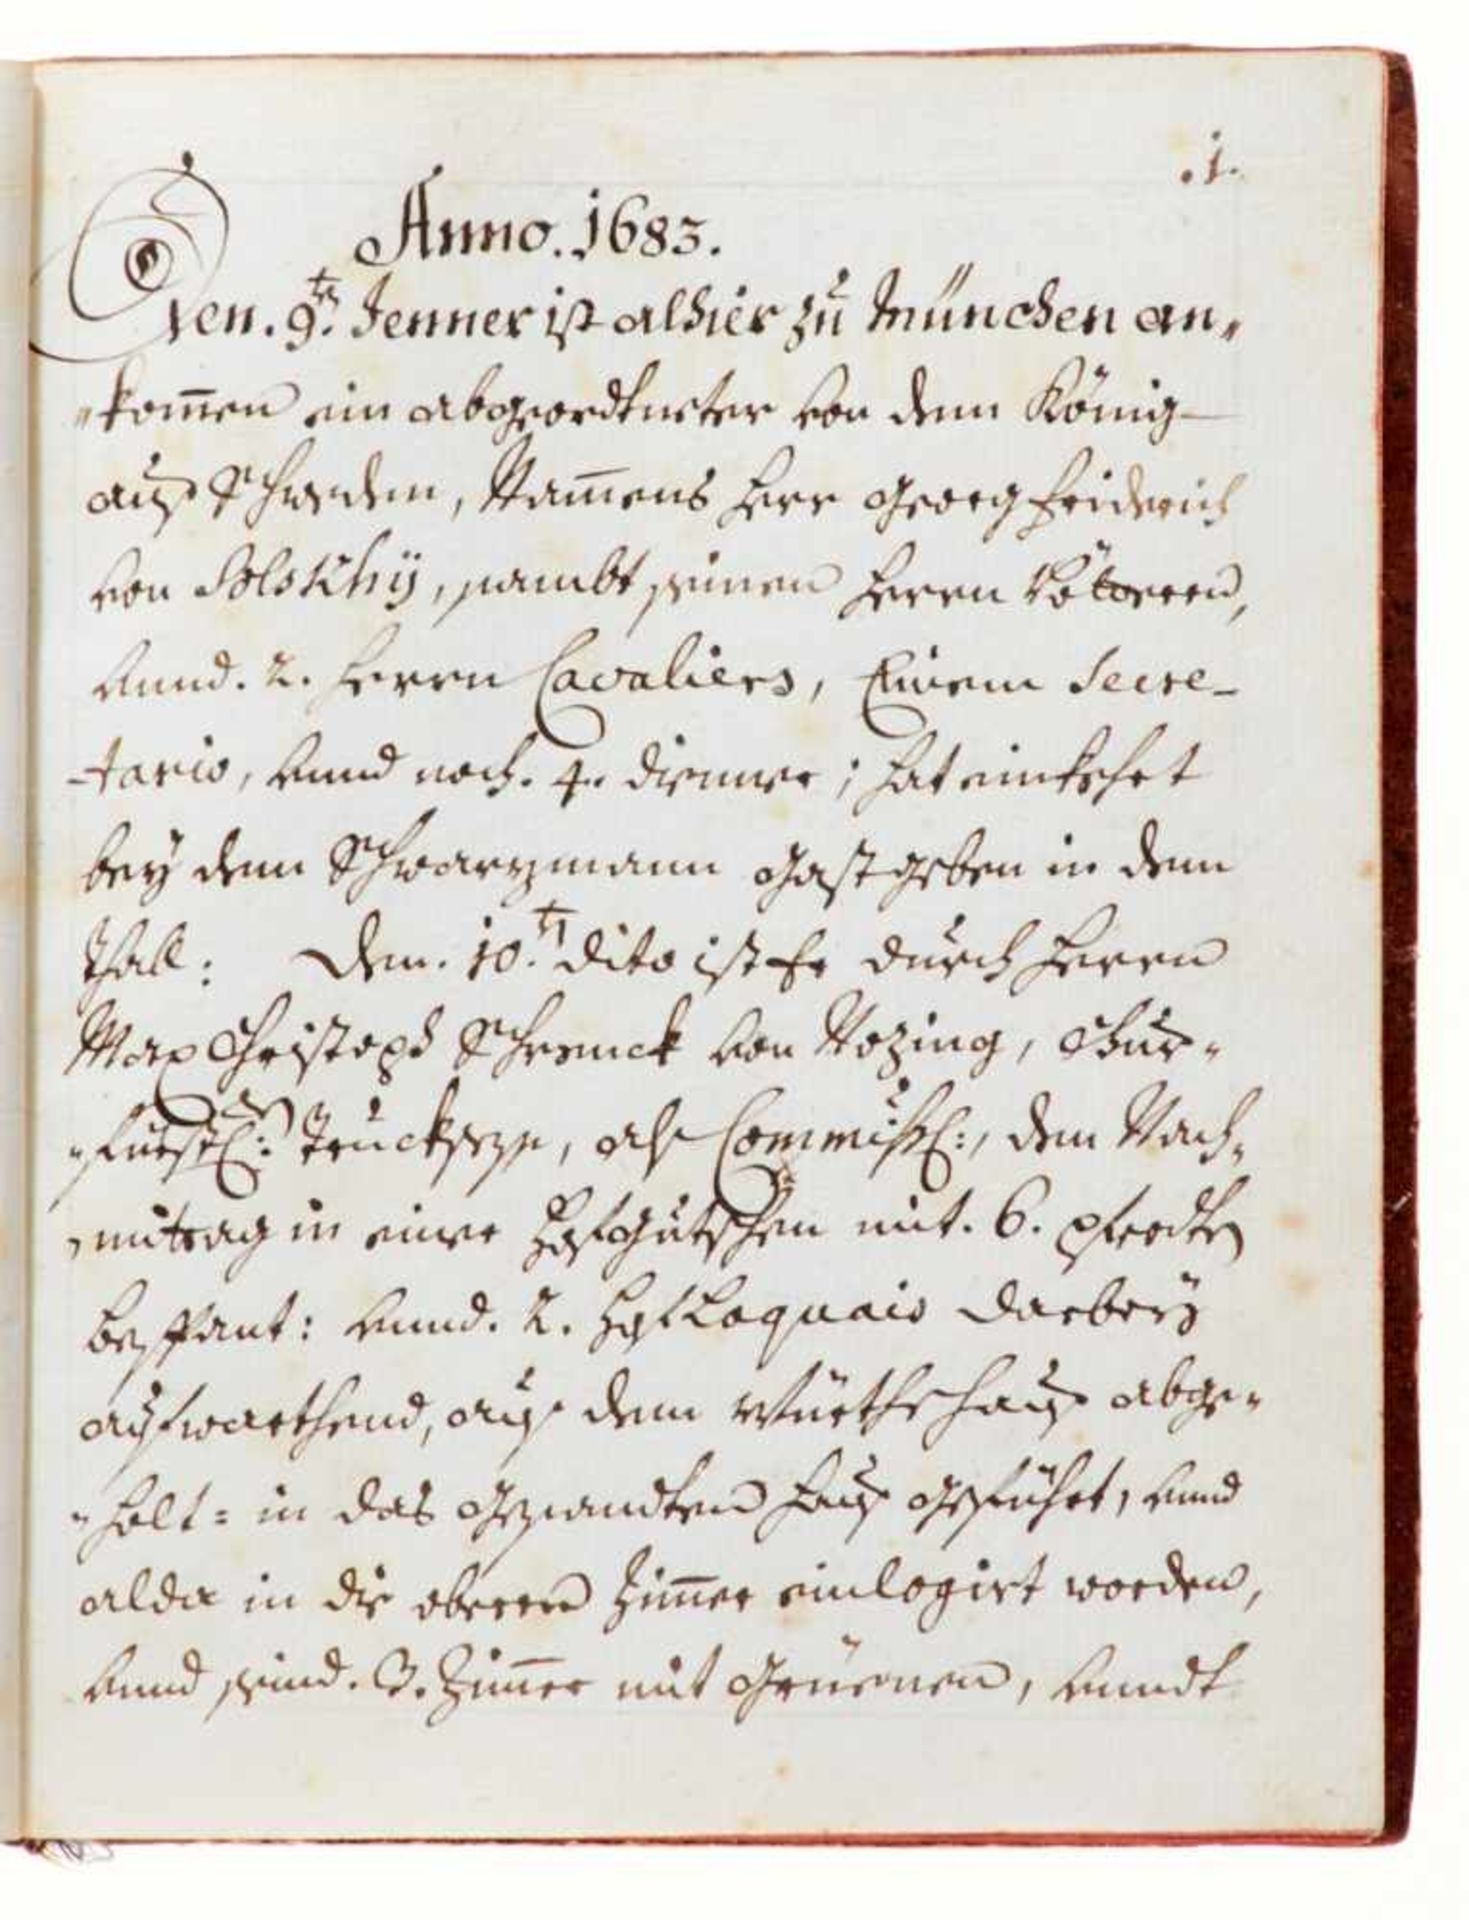 .1.
Anno. 1683.
Den. 9.ten Jenner ist alhier zu München an„
„kom̄en ein abgeordtneter von dem König
auß Schweden, Nam̄ens Herr Georg Friderich
von Solskhij, sambt seinen Herrn Vöttern,
vnnd. 2. Herrn Cavaliers, Einem Secre-
-tario, vnnd noch. 4. dienner; hat einkehrt
bey dem Schwarzmann Gastgeben in dem
Thall: Den. 10.ten dito ist Er durch Herrn
Max Christoph Schrenck von Nozing, Chur-„
„Fürstl: Truckseß, als Commissl:, den Nach„
„mitag in einer Hofgutschen mit. 6. Pferdten
bespant: vnnd. 2. Hof Laquais darbey
aufwarthend, auß dem Würthshauß abge„
„holt: in das Gesandten Hauß geführt, vnnd
alda in die obern Zim̄er einlogirt worden,
vnnd seind. 3. Zim̄er mit Grüenen, vnndt